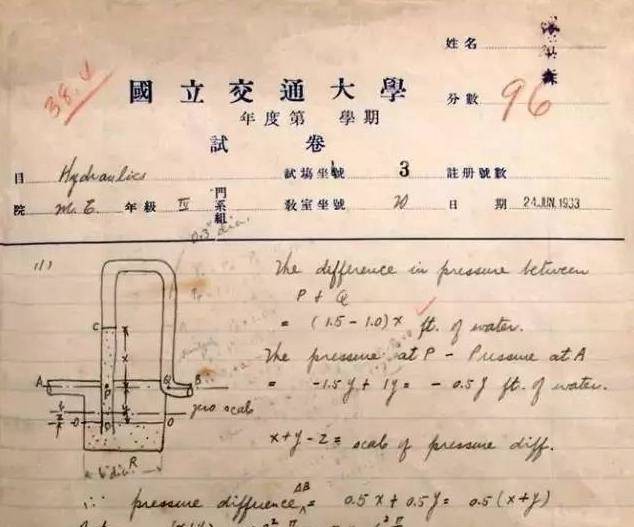 姓名
38.4
國立交通大學
分數 96
年度第 學期
試卷
目 Hydraulics 試場坐號 3 註册號數
院 M.E. 年級 IV 門系組 教室坐號 20 日期 24.JUN.1933
0.3" dia.
(1) The difference in pressure between
P & Q
= (1.5 - 1.0) x ft. of water.
The pressure at P - Pressure at A
= -1.5y + 1y = - 0.5y ft. of water.
x + y - z = scale of pressure diff.
C
x
A
P
Q
B
y
zero scale
z
O
O
R
dia.
∴ pressure difference AB = 0.5x + 0.5y = 0.5 (x+y)